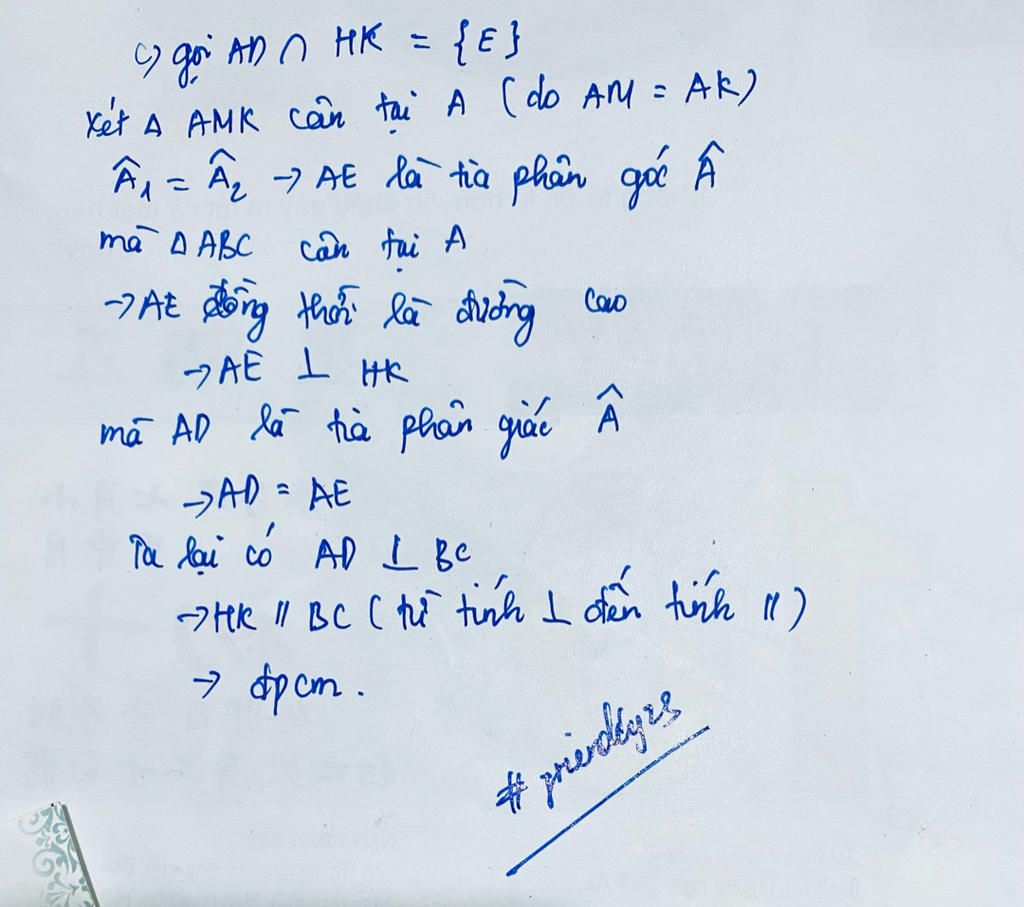 c) gọi AD ∩ HK = {E}
Xét Δ AMK cân tại A (do AM = AK)
Â₁ = Â₂ → AE là tia phân góc Â
mà Δ ABC cân tại A
→ AE đồng thời là đường cao
→ AE ⊥ HK
mà AD là tia phân giác Â
→ AD = AE
Ta lại có AD ⊥ BC
→ HK // BC (từ tính ⊥ đến tính //)
→ đpcm.